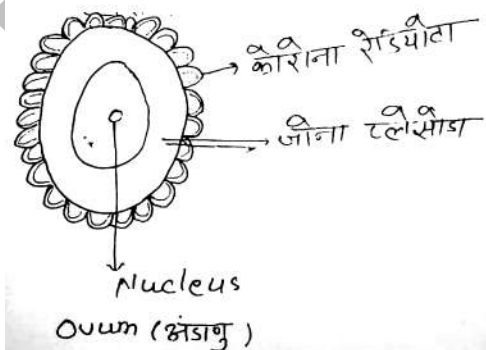 कोरोना रेडियोटा
जोना प्लेसोडा
Nucleus
Ovum (अंडाणु)